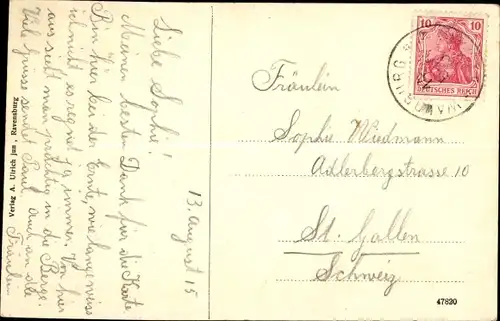 Liebe Sophie!
Meinen besten Dank für die Karte.
Bin hier bei der Ernte, wie lange weiss
ich nicht es regnet ja immer. Von hier
aus sieht man prächtig in die Berge.
Viele Grüsse sendet Paul. auch an die
Fräulein
13. August 15
Verlag A. Ulrich jun., Ravensburg
10 10
DEUTSCHES REICH
Fräulein
Sophie Wiedmann
Adlerbergstrasse 10
St. Gallen
Schweiz
47820